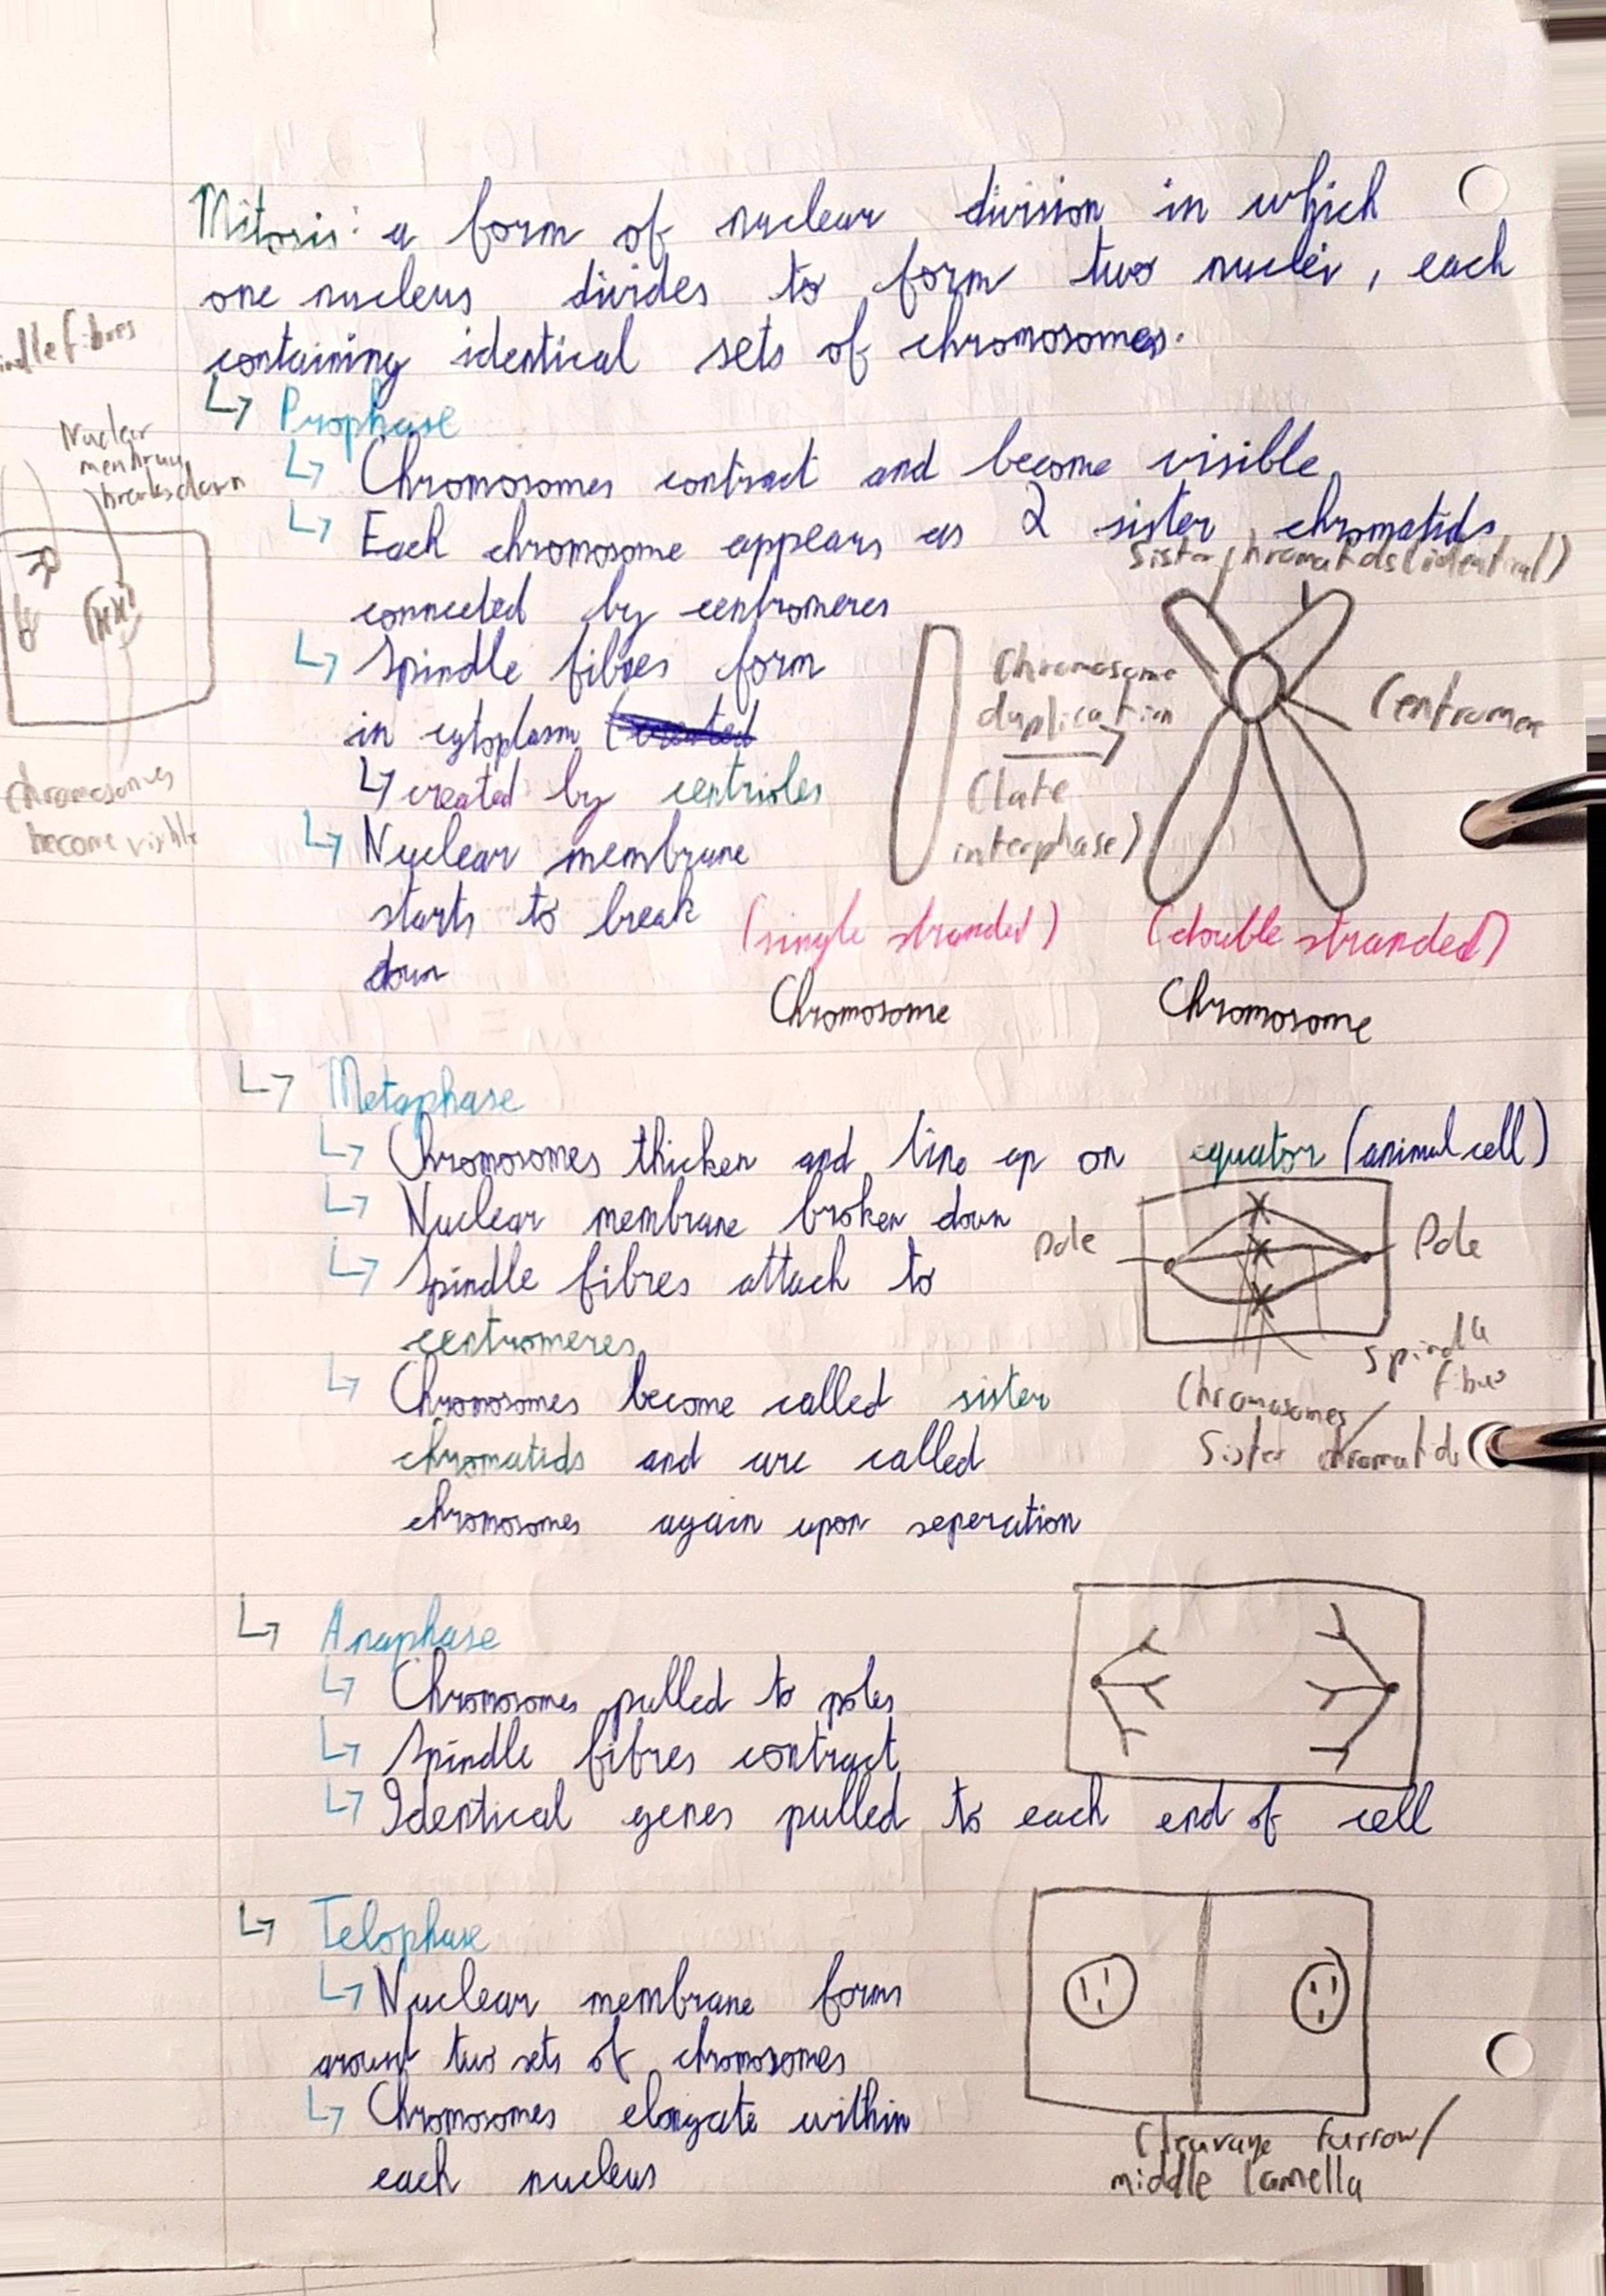 Mitosis: a form of nuclear division in which
one nucleus divides to form two nuclei, each
containing identical sets of chromosomes.
fibres
↳ Prophase
Nuclear
membrane
breaks down
↳ Chromosomes contract and become visible
↳ Each chromosome appears as 2 sister chromatids
connected by centromeres
Sister chromatids (identical)
↳ Spindle fibres form
in cytoplasm (created
↳ created by centrioles
↳ Nuclear membrane
starts to break
down
Chromosomes
become visible
Chromosome
duplication
(late
interphase)
Centromere
(single stranded)
(double stranded)
Chromosome
Chromosome
↳ Metaphase
↳ Chromosomes thicken and line up on equator (animal cell)
↳ Nuclear membrane broken down
↳ Spindle fibres attach to
centromeres
↳ Chromosomes become called sister
chromatids and are called
chromosomes again upon seperation
Pole
Pole
Spindle
fibres
Chromosomes/
Sister chromatids
↳ Anaphase
↳ Chromosomes pulled to poles
↳ Spindle fibres contract
↳ Identical genes pulled to each end of cell
↳ Telophase
↳ Nuclear membrane forms
around two sets of chromosomes
↳ Chromosomes elongate within
each nucleus
Cleavage furrow/
middle lamella